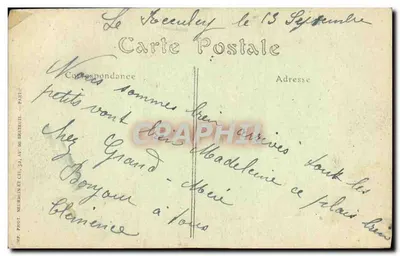 Le le 13 Septembre
Carte Postale
Correspondance
Adresse
Nous sommes bien arrivés tout les
petits vont bien Madeleine ce plais bien
chez Grand-Mère
Bonjour à tous
Clémence
CARTE POSTALE